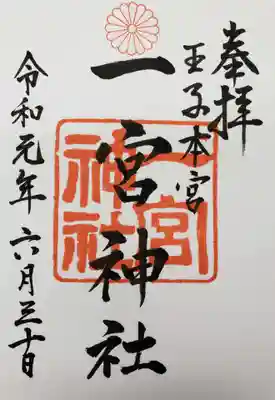 奉拝
王子本宮
一宮神社
一宮
神社
令和元年六月三十日